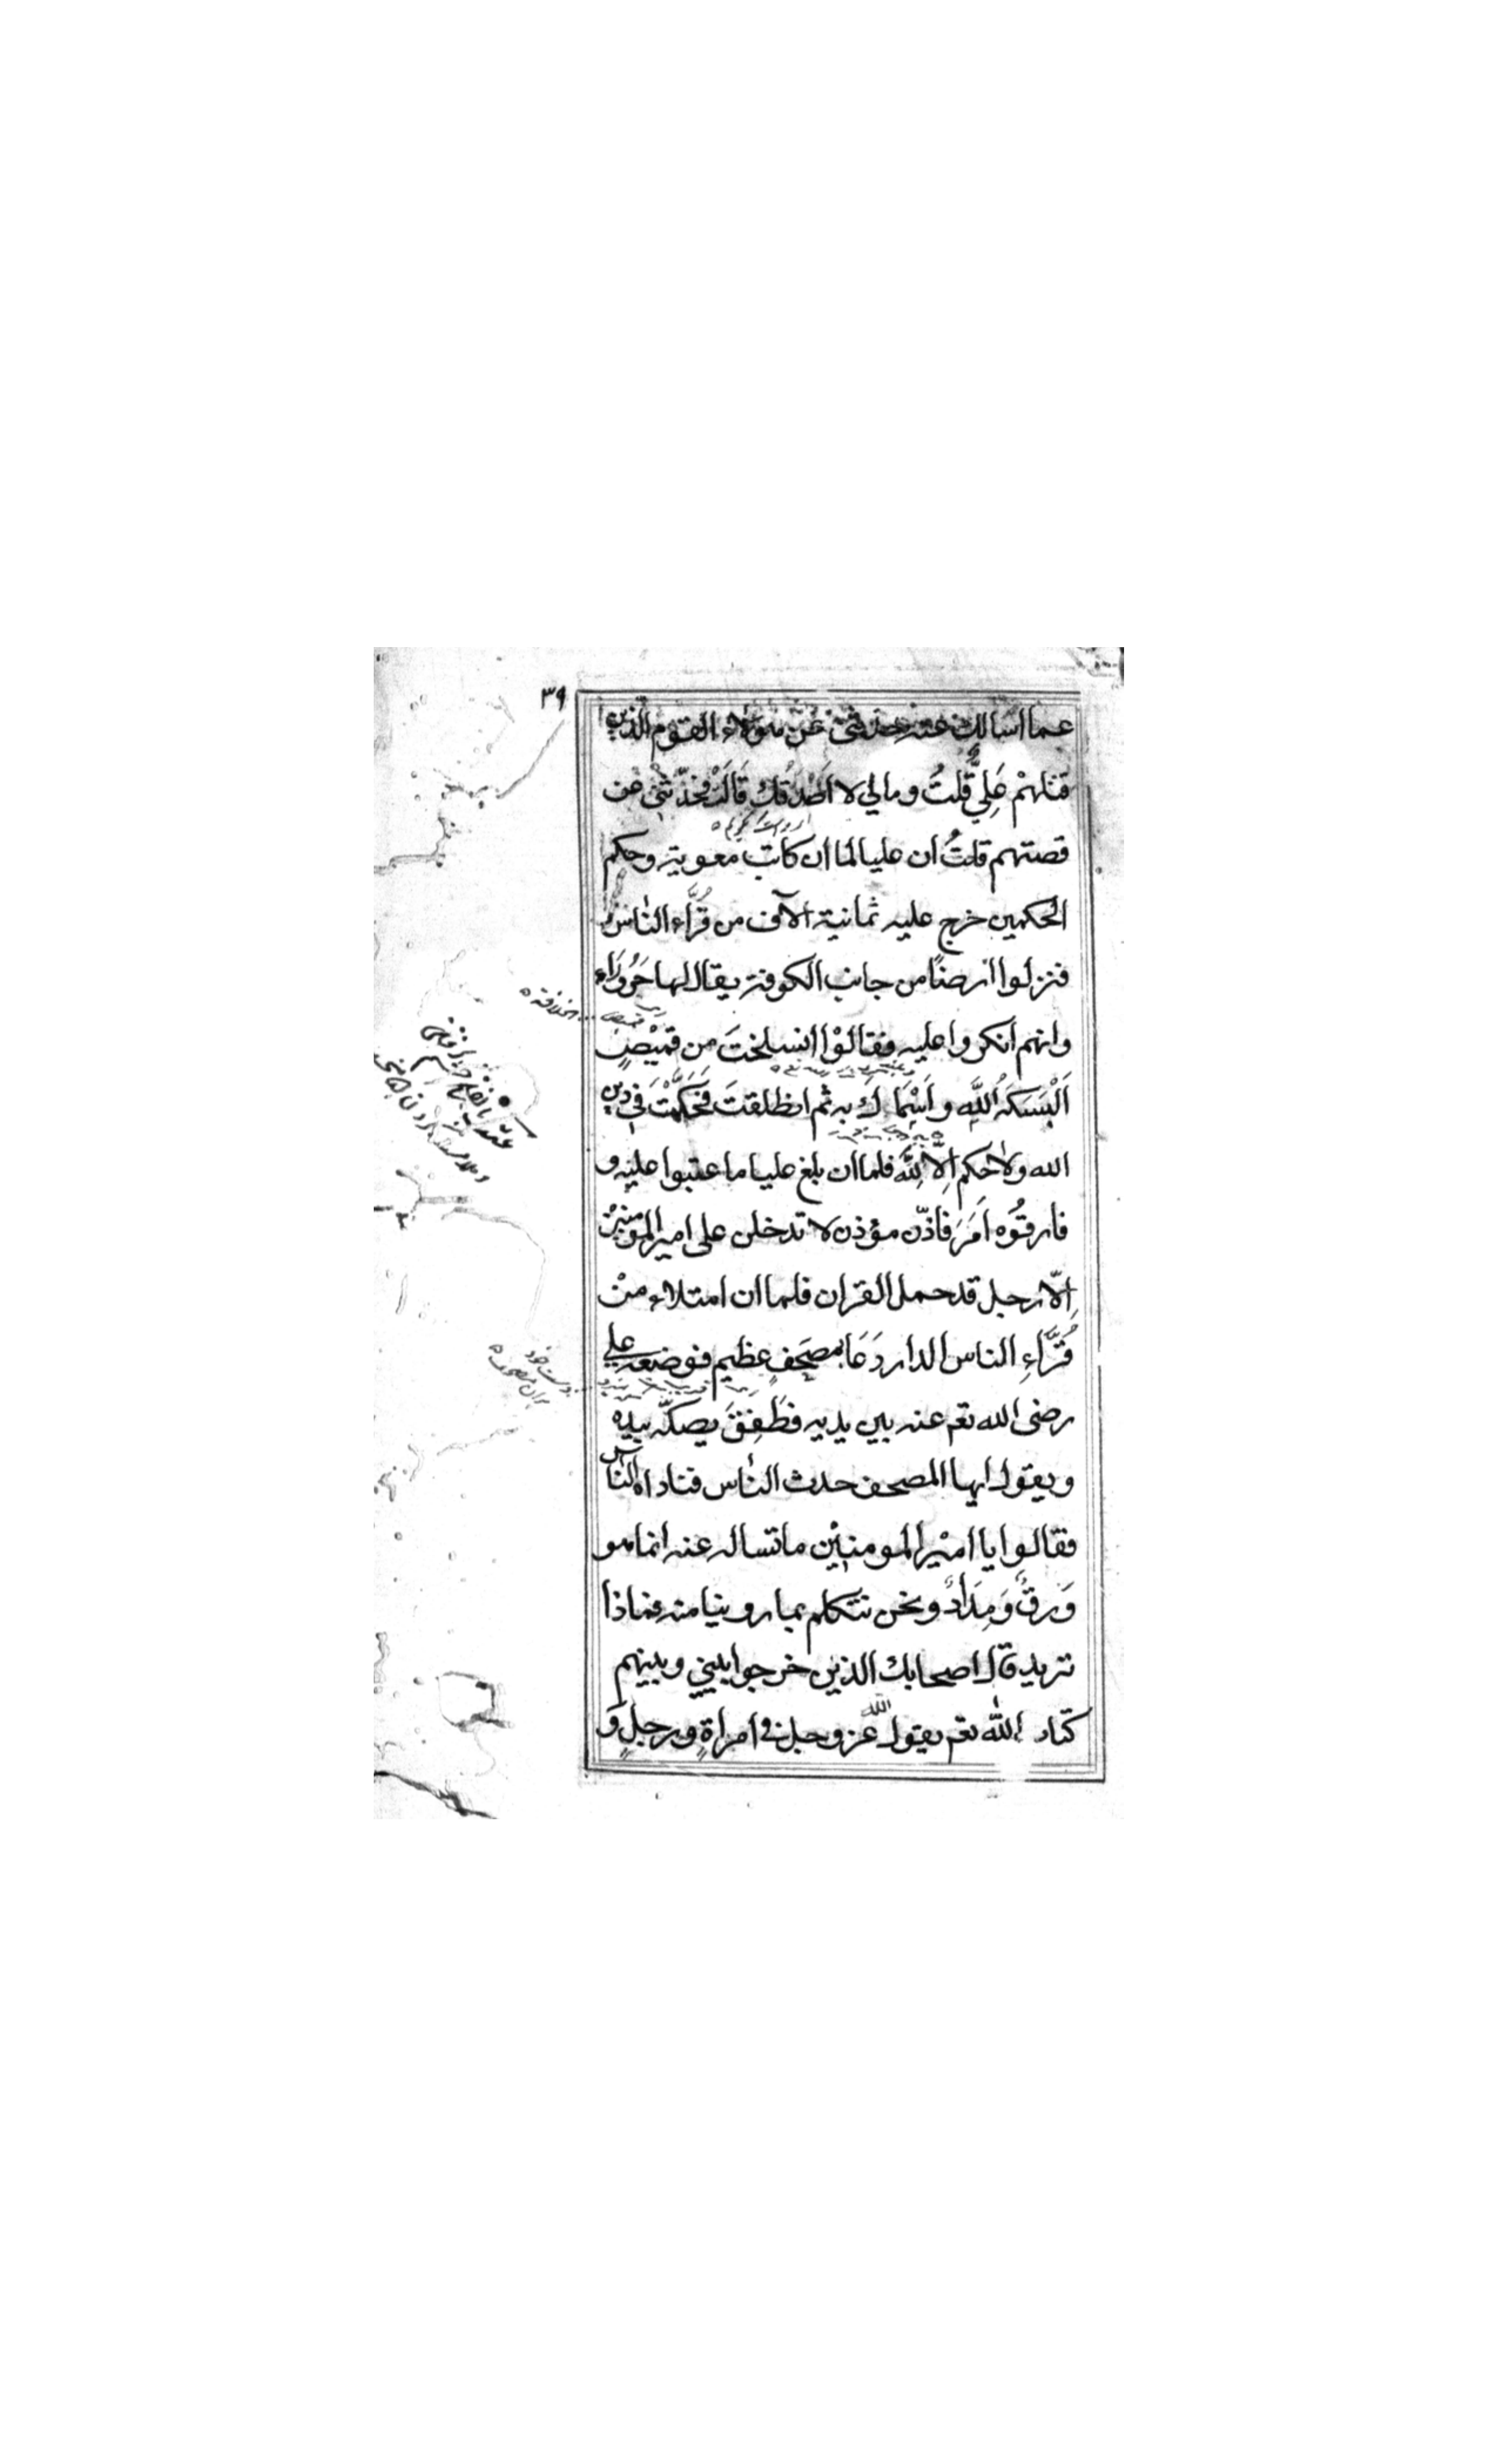 ٣٩
عما اسالك عنه حدثنى عن هؤلاء القوم الذين
قتلهم عَلِيٌّ قُلتُ ومالي لا اَصْدُقُكِ قَالَتْ فَحَدِّثْنِىْ عن
قصتهم قلتُ ان عليا لما ان كاتب معوية وحكم
الحكمين خرج عليه ثمانية آلاف من قُرَّاء الناس
فنزلوا ارضًا من جانب الكوفة يقال لها حَرُوْرَاء
وانهم انكروا عليه فقالوْا انسلختَ من قميْصٍ
اَلْبَسَكَهُ اللّٰهُ واِسْمٍ سَمَّاكَ به ثم انطلقتَ فَحَكَّمْتَ فِىْ دين
الله ولا حكم اِلَّا لِلّٰه فلما ان بلغ عليا ما عتبوا عليه و
فارقُوْه اَمَرَ فاذّن مؤذن لا تدخلن على امير المومنيْن
اِلّا رجل قد حمل القران فلما ان امتلاء مِنْ
قُرَّاءِ الناس الدار دَعَا بمصحَفٍ عظيمٍ فوضعه على
رضى الله تعم عنه بين يديه فطَفِقَ يصكّه بيده
ويقول ايها المصحف حدث الناس فناداه الناس
فقالوا يا امير المومنين ما تسال عنه انما هو
وَرقٌ وَمِدَادٌ ونحن نتكلم بما روينا منه فماذا
تريد قال اصحابك الذين خرجوا بيني وبينهم
كتاب الله تعم يقول الله عز وجل فى امراةٍ ورجلٍ و